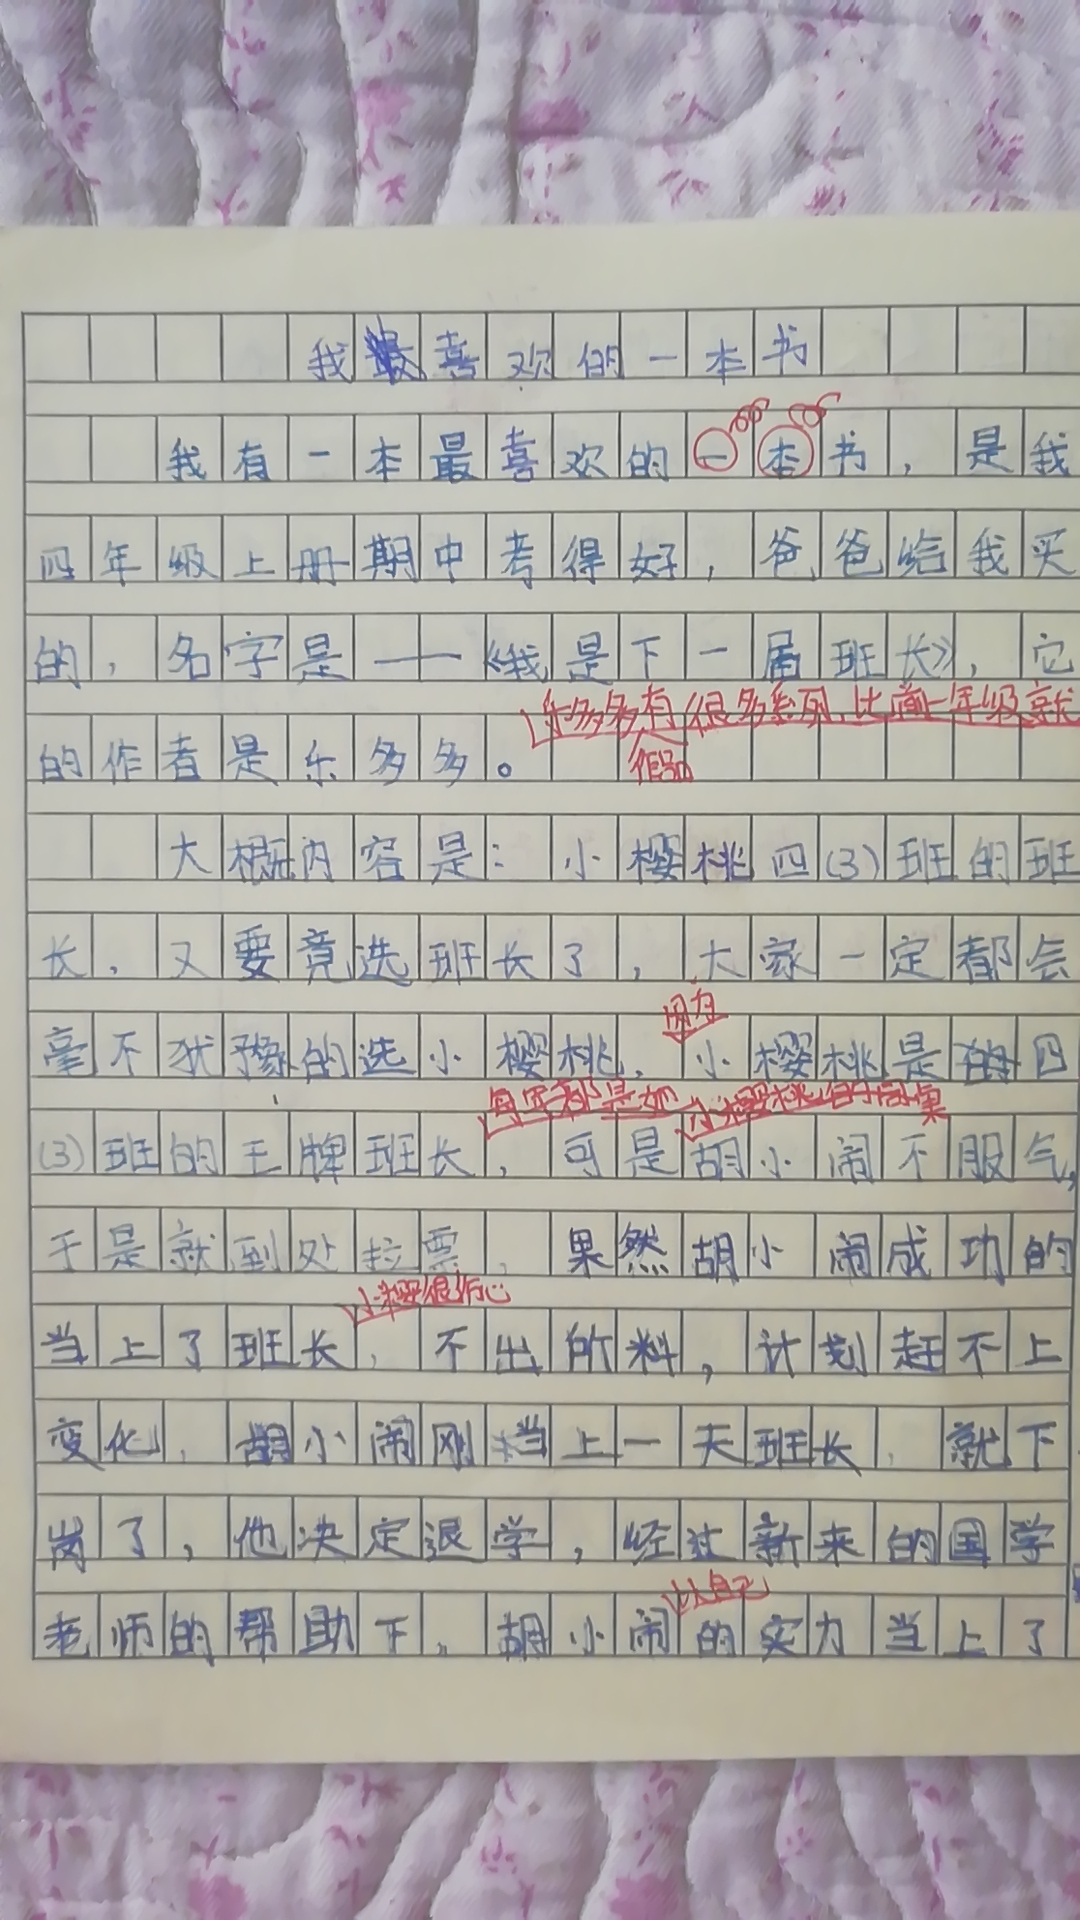 我最喜欢的一本书
我有一本最喜欢的一本书，是我
四年级上册期中考得好，爸爸给我买
的，名字是——《我是下一届班长》，它
乐多多有很多系列，比如一年级就
的作者是乐多多。
大概内容是：小樱桃四(3)班的班
长，又要竟选班长了，大家一定都会
因为
毫不犹豫的选小樱桃，小樱桃是的四
每年都是她 小樱桃的同桌
(3)班的王牌班长，可是胡小闹不服气，
于是就到处拉票，果然胡小闹成功的
小樱很伤心
当上了班长，不出所料，计划赶不上
变化，胡小闹刚当上一天班长，就下
岗了，他决定退学，经过新来的国学
以自己
老师的帮助下，胡小闹的实力当上了